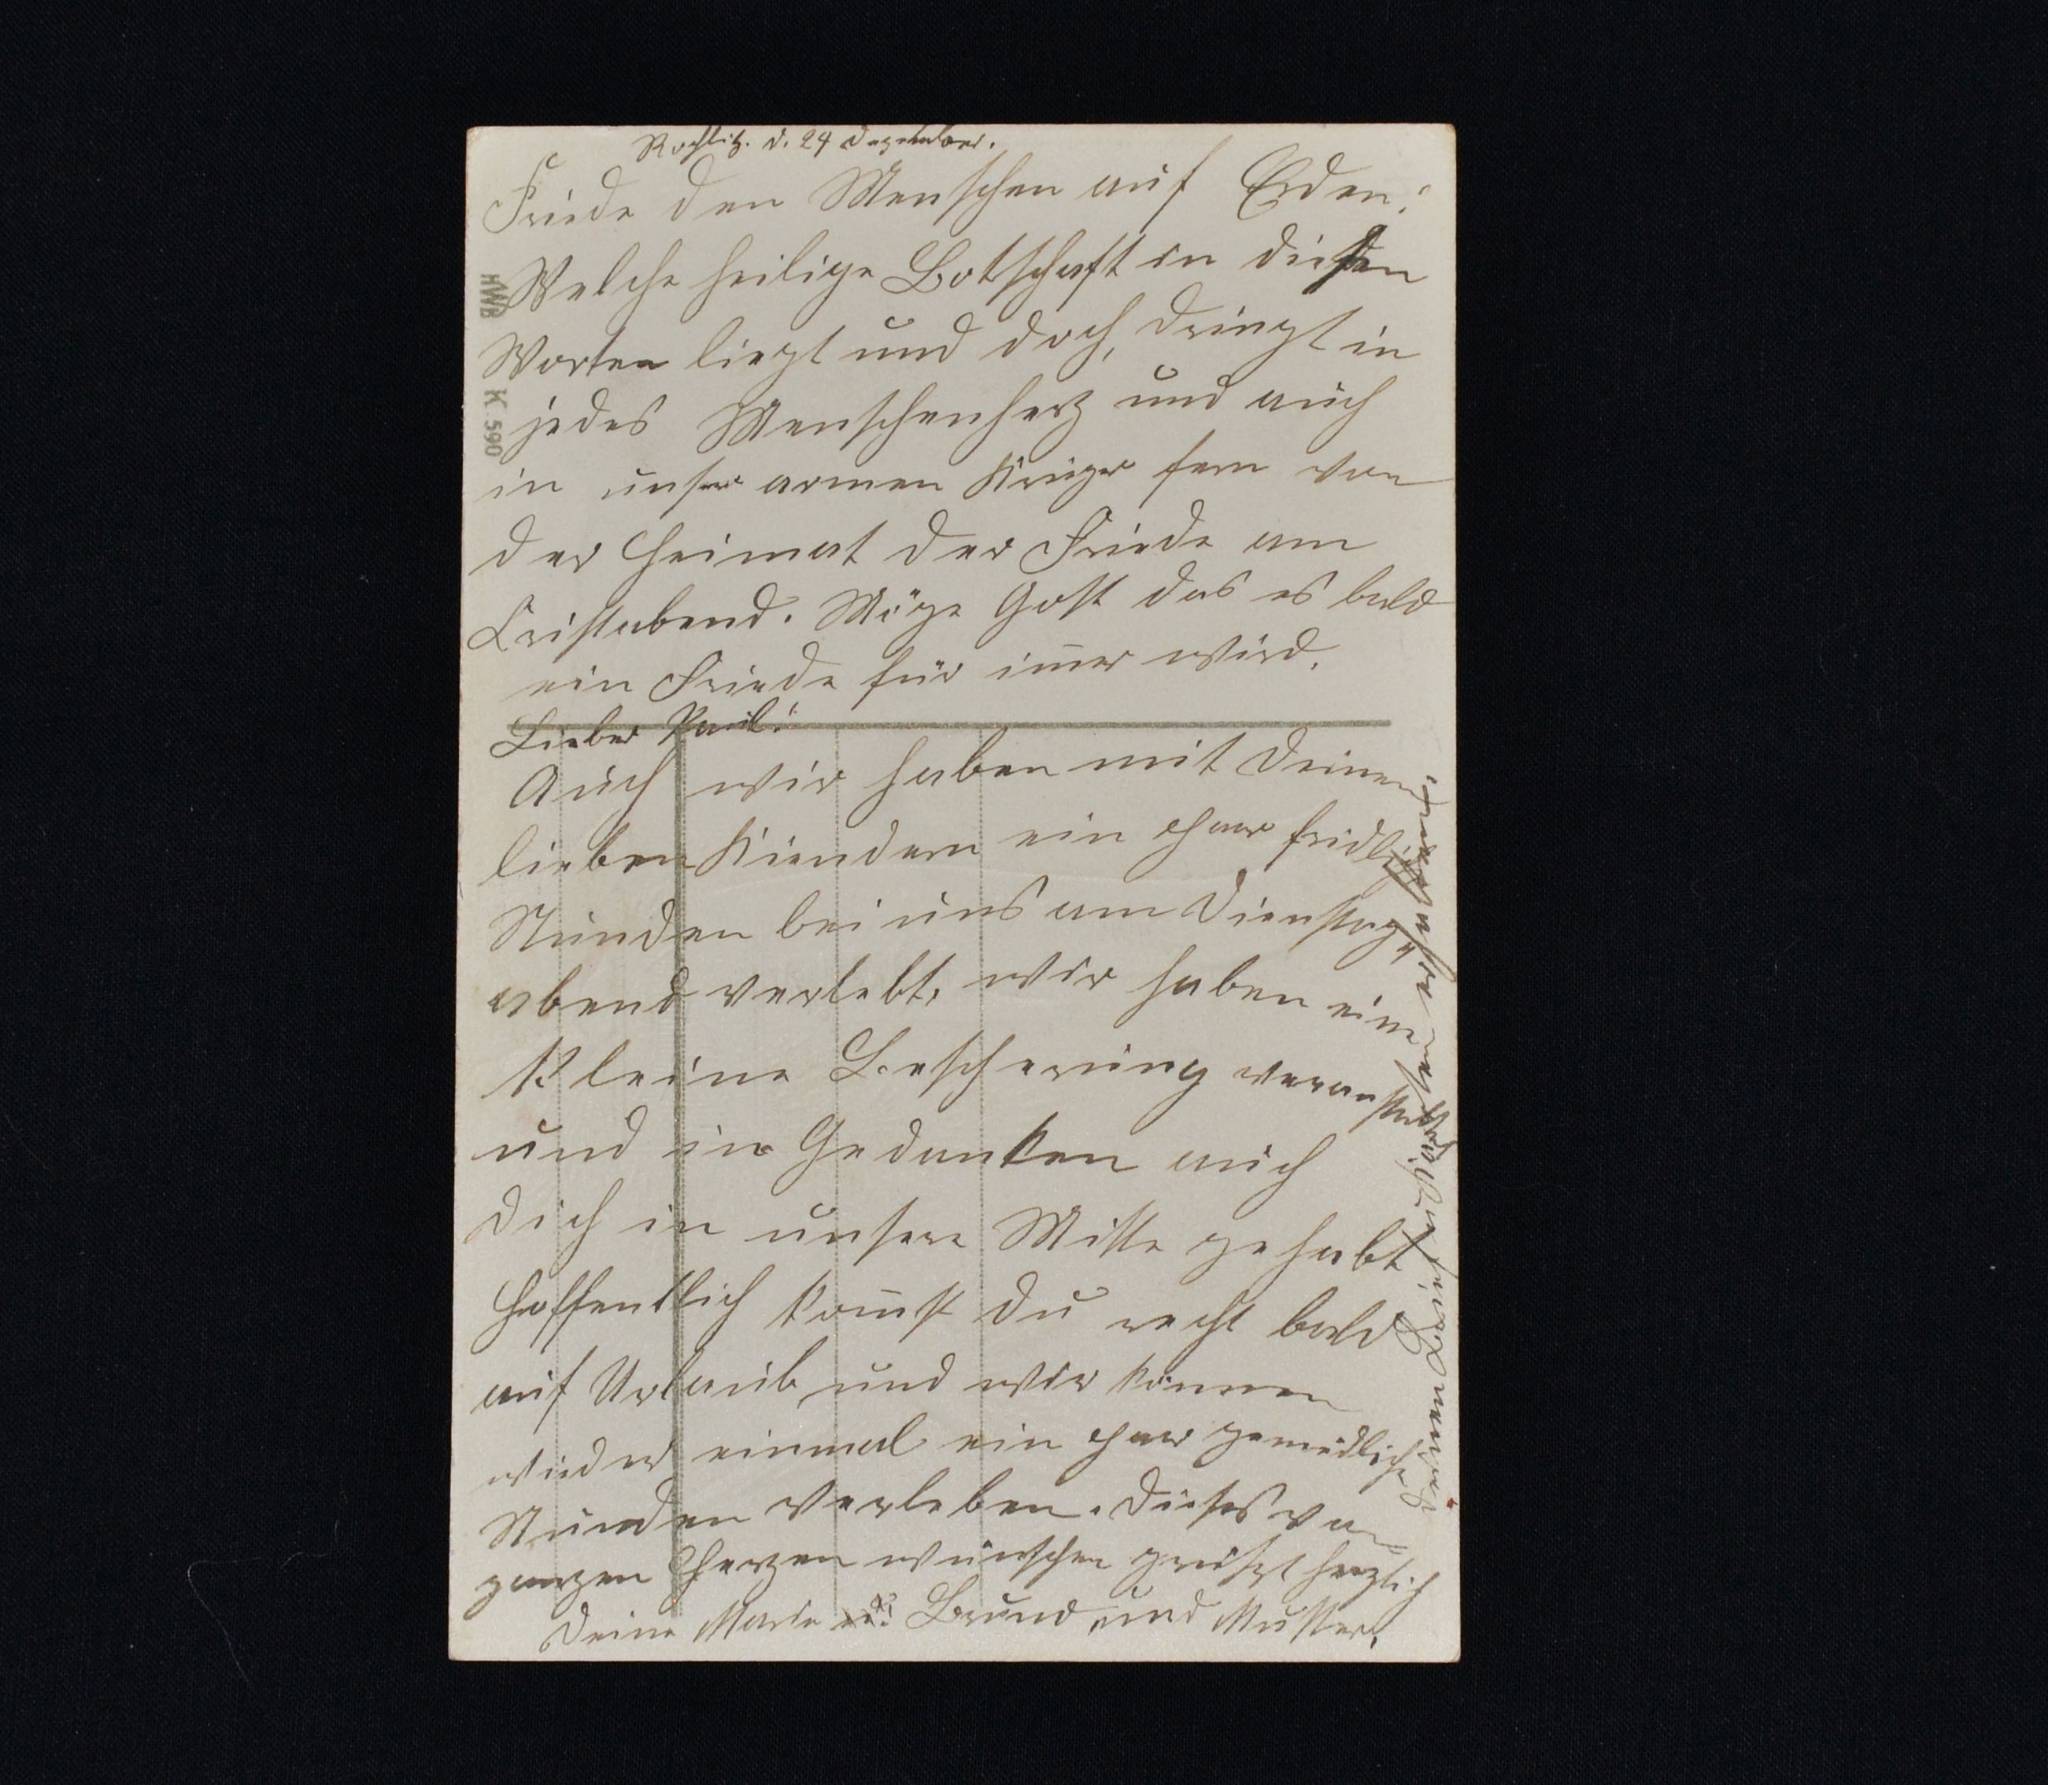 Rochlitz. d. 24 Dezember.
Friede den Menschen auf Erden!
Welche heilige Botschaft in diesen
Worten liegt und doch, dringt in
jedes Menschenherz und auch
in unsre armen Krieger fern von
der Heimat der Friede am
Cristabend. Möge Gott das es bald
ein Friede für im̄er wird.
Lieber Paul!
Auch wir haben mit Deinen
lieben Kiendern ein paar fridliche
Stunden bei uns am Dienstag
abend verlebt, wir haben eine
kleine Bescherung veranstaltet
und in Gedanken auch
Dich in unsere Mitte gehabt
Hoffentlich kom̄st Du recht bald
auf Urlaub und wir können
wieder einmal ein paar gemüdliche
Stunden verleben. Dieses von
ganzen Herzen wünschen grüßt herzlich
Deine Marie Bruno und Mutter.
deinen Brief und
HWB
K 590